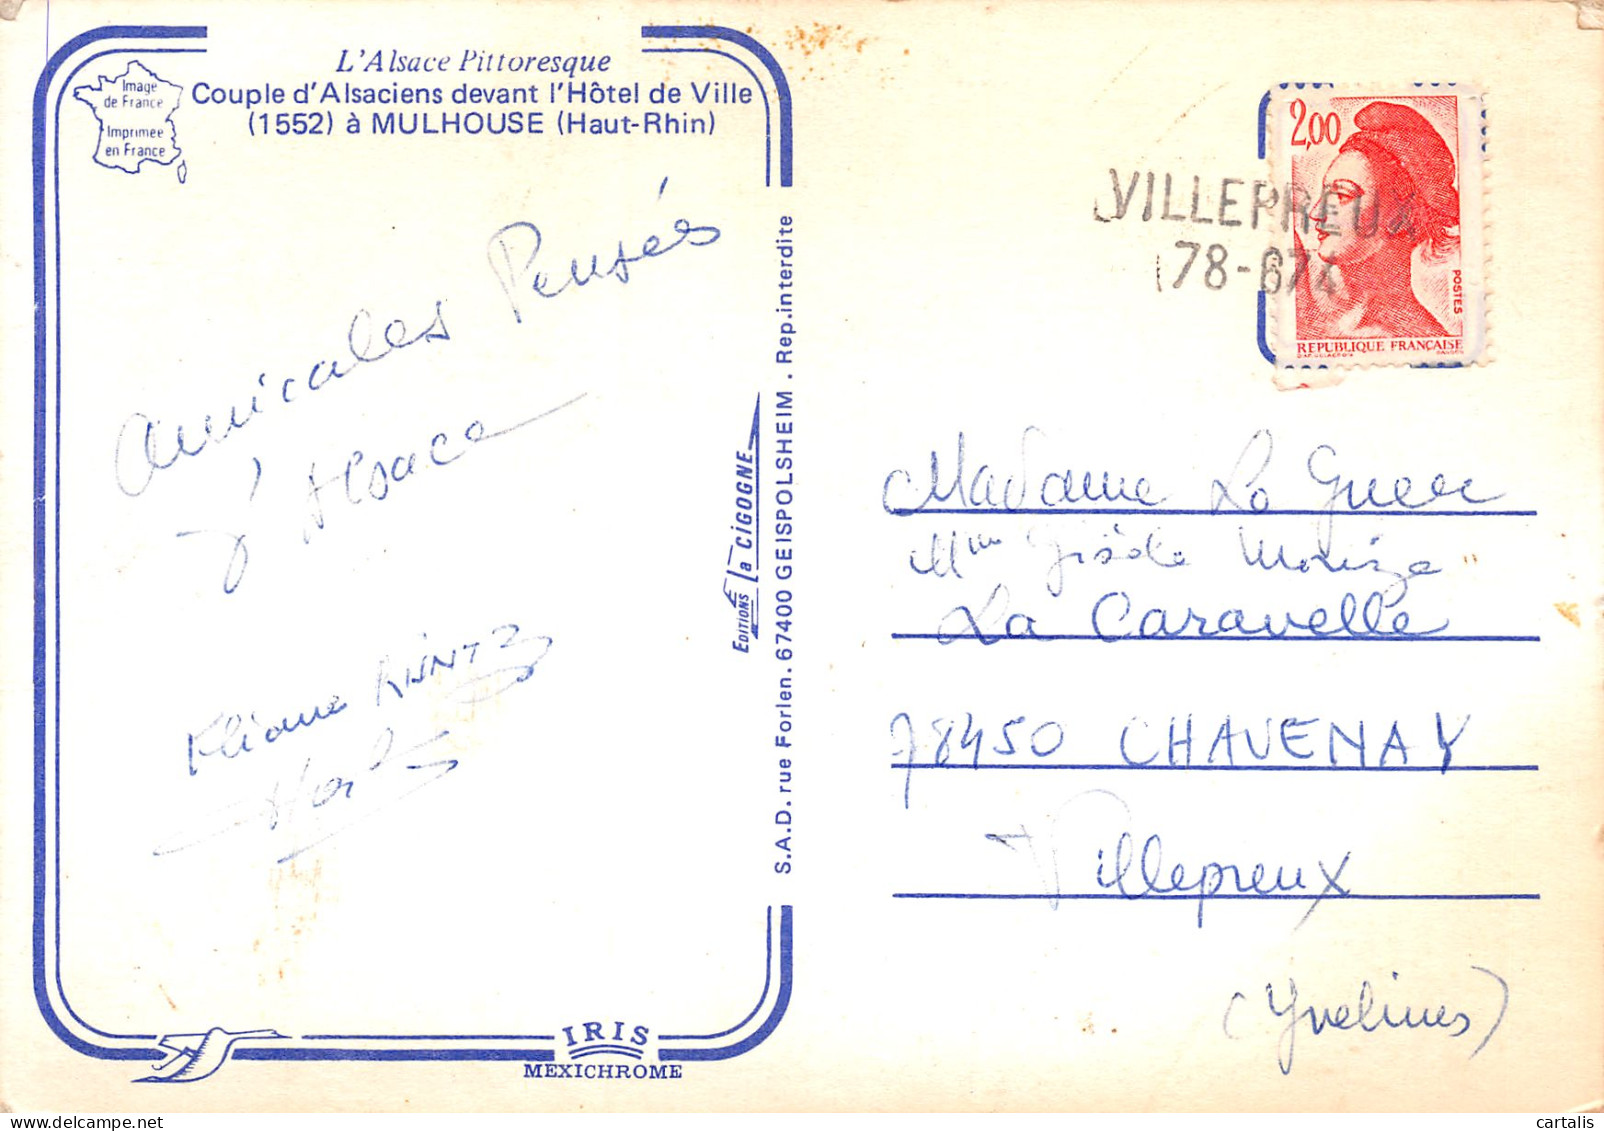 L'Alsace Pittoresque
Couple d'Alsaciens devant l'Hôtel de Ville
(1552) à MULHOUSE (Haut-Rhin)
Image
de France
Imprimée
en France
Amicales Pensées
d'Alsace
Eliane KUNTZ
EDITIONS la CIGOGNE
S.A.D. rue Forlen. 67400 GEISPOLSHEIM . Rep.interdite
IRIS
MEXICHROME
2,00
POSTES
REPUBLIQUE FRANÇAISE
VILLEPREUX
78-674
Madame Le Guerec
Mme Gisèle
La Caravelle
78450 CHAVENAY
Villepreux
(Yvelines)
cartalis